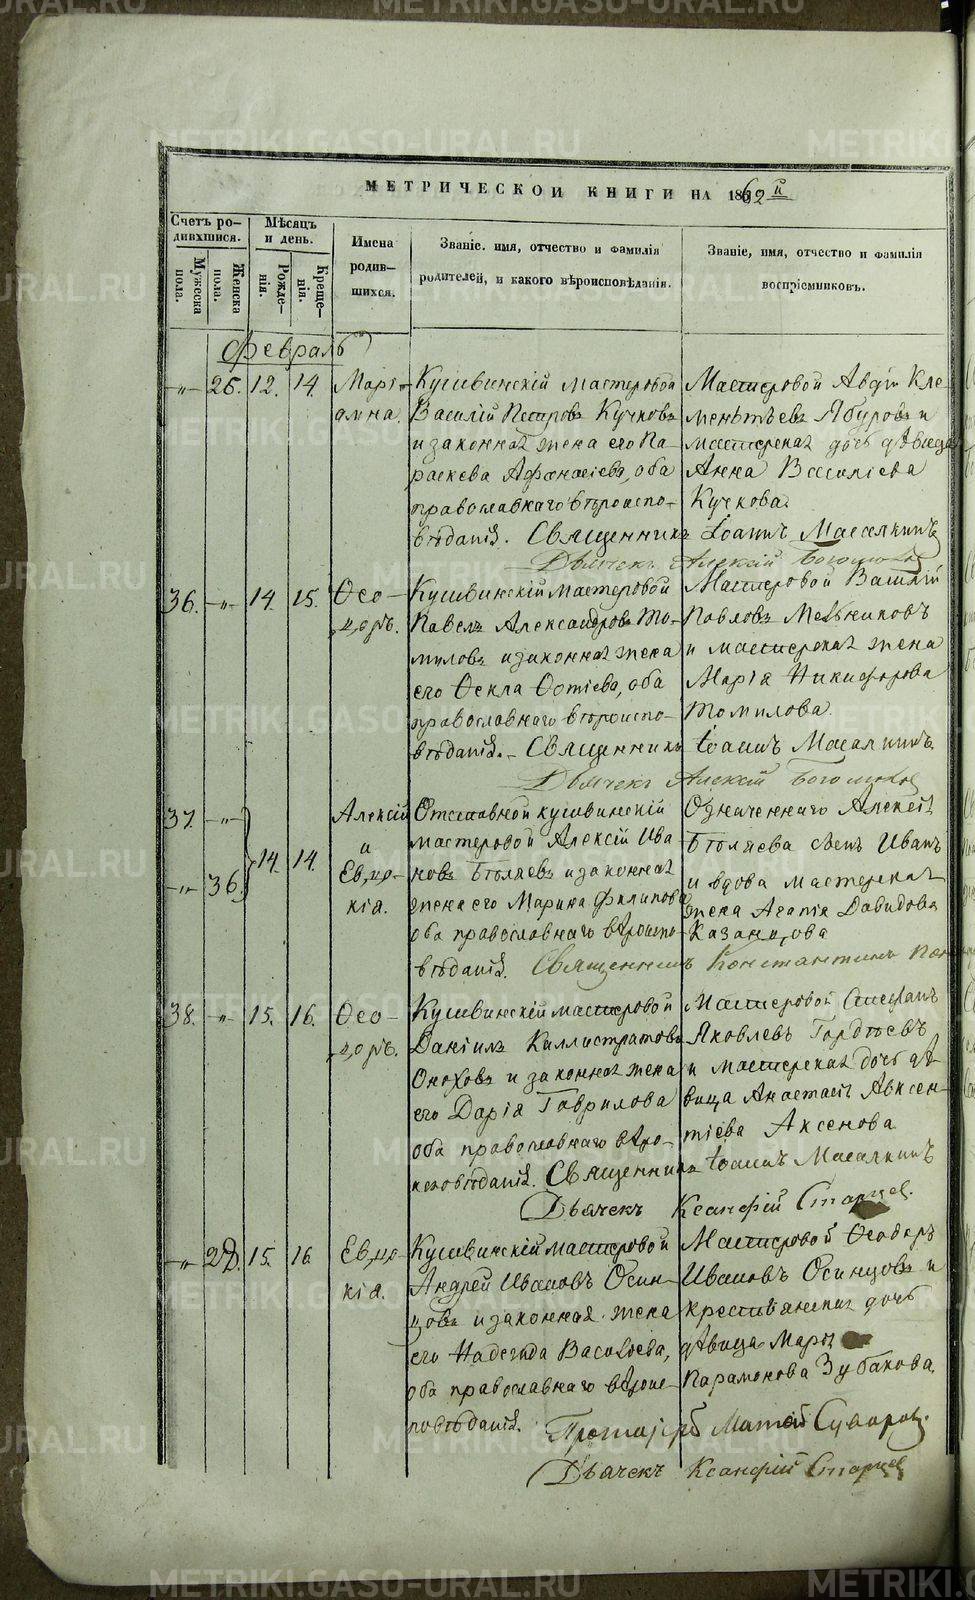 МЕТРИЧЕСКОЙ КНИГИ НА 1862 й
Счетъ ро-
дившихся.
Мужеска
пола.
Женска
пола.
Мѣсяцъ
и день.
Рожде-
нія.
Креще-
нія.
Имена
родив-
шихся.
Званіе, имя, отчество и фамилія
родителей, и какого вѣроисповѣданія.
Званіе, имя, отчество и фамилія
воспріемниковъ.
Февраль
-"- 25. 12. 14.
Марі-
амна.
Кушвинскій мастеровой
Василій Петровъ Кучковъ
и законная жена его Па-
раскева Афанасіева, оба
православнаго вѣроиспо-
вѣданія. Священникъ Іоаннъ
Мастеровой Авдій Кле-
ментьевъ Ябуровъ и
мастерская дочь дѣвица
Анна Васильева
Кучкова.
Дьячекъ Алексій
36. -"- 14. 15.
Ѳео-
доръ.
Кушвинскій мастеровой
Павелъ Александровъ То-
миловъ и законная жена
его Ѳекла Фотіева, оба
православнаго вѣроиспо-
вѣданія. - Священникъ Іоаннъ
Мастеровой Василій
Павловъ Мельниковъ
и мастерская жена
Марія Никифорова
Томилова.
Дьячекъ Алексій
37. -"-
-"- 36.
14. 14.
Алексій
и
Евдо-
кія.
Отставной кушвинскій
мастеровой Алексій Ива-
новъ Бѣляевъ и законная
жена его Марина Филипова
оба православнаго вѣроиспо-
вѣданія. Священникъ Константинъ
Означеннаго Алексѣя
Бѣляева сынъ Иванъ
и вдова мастерская
жена Агапія Давидова
Казанцова
38. -"- 15. 16.
Ѳео-
доръ.
Кушвинскій мастеровой
Даніилъ Каллистратовъ
Оноховъ и законная жена
его Дарія Гаврилова
оба православнаго вѣро-
исповѣданія. Священникъ Іоаннъ
Мастеровой Стефанъ
Яковлевъ Гордѣевъ
и мастерская дочь дѣ-
вица Анастасія Авксен-
тіева Аксенова
Дьячекъ Ксанфій Старцев.
-"- 15. 16
Евдо-
кія.
Кушвинскій мастеровой
Андрей Ивановъ Осин-
цовъ и законная жена
его Надежда Васильева,
оба православнаго вѣроис-
повѣданія.
Мастеровой Ѳеодоръ
Ивановъ Осинцовъ и
крестьянская дочь
дѣвица Марія
Парамонова Зубакова.
Протоіерей Матѳій Суворов.
Дьячекъ Ксанфій Старцев
METRIKI.GASO-URAL.RU